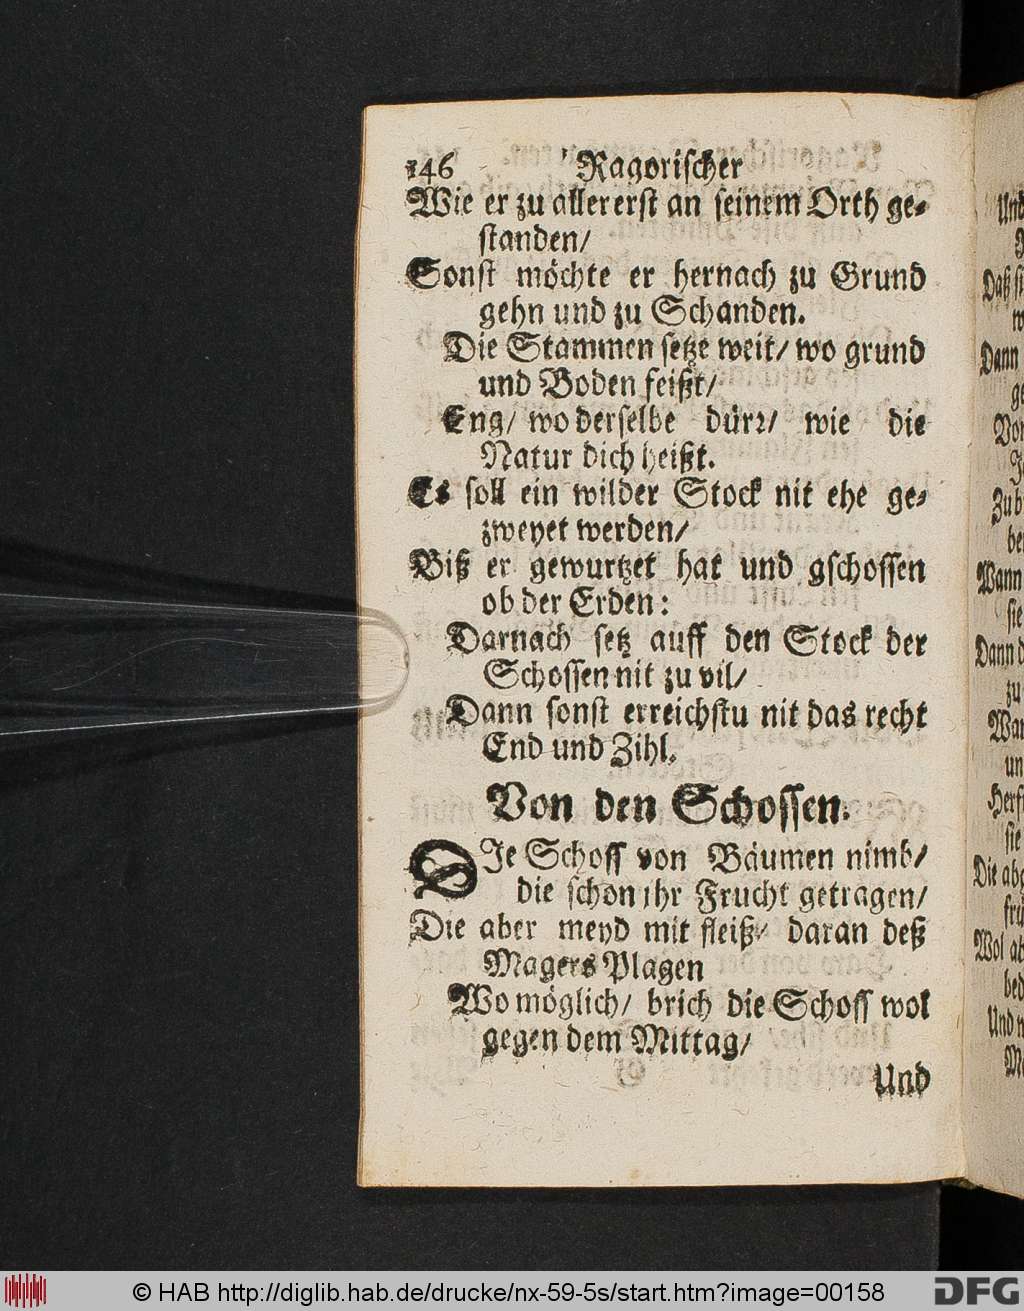 146 Ragorischer
Wie er zu allererst an seinem Orth ge-
standen/
Sonst möchte er hernach zu Grund
gehn und zu Schanden.
Die Stammen setze weit/ wo grund
und Boden feißt/
Eng/ wo derselbe dürr/ wie die
Natur dich heißt.
Es soll ein wilder Stock nit ehe ge-
zweyet werden/
Biß er gewurtzet hat und gschossen
ob der Erden:
Darnach setz auff den Stock der
Schossen nit zu vil/
Dann sonst erreichstu nit das recht
End und Zihl.
Von den Schossen.
DIe Schoss von Bäumen nimb/
die schon ihr Frucht getragen/
Die aber meyd mit fleiß/ daran deß
Magers Plagen
Wo möglich/ brich die Schoss wol
gegen dem Mittag/
Und
Und
Daß
Dann
Vor
Zu
Wann
sie
Dann
zu
un
sie
Wol
Und
© HAB http://diglib.hab.de/drucke/nx-59-5s/start.htm?image=00158
DFG